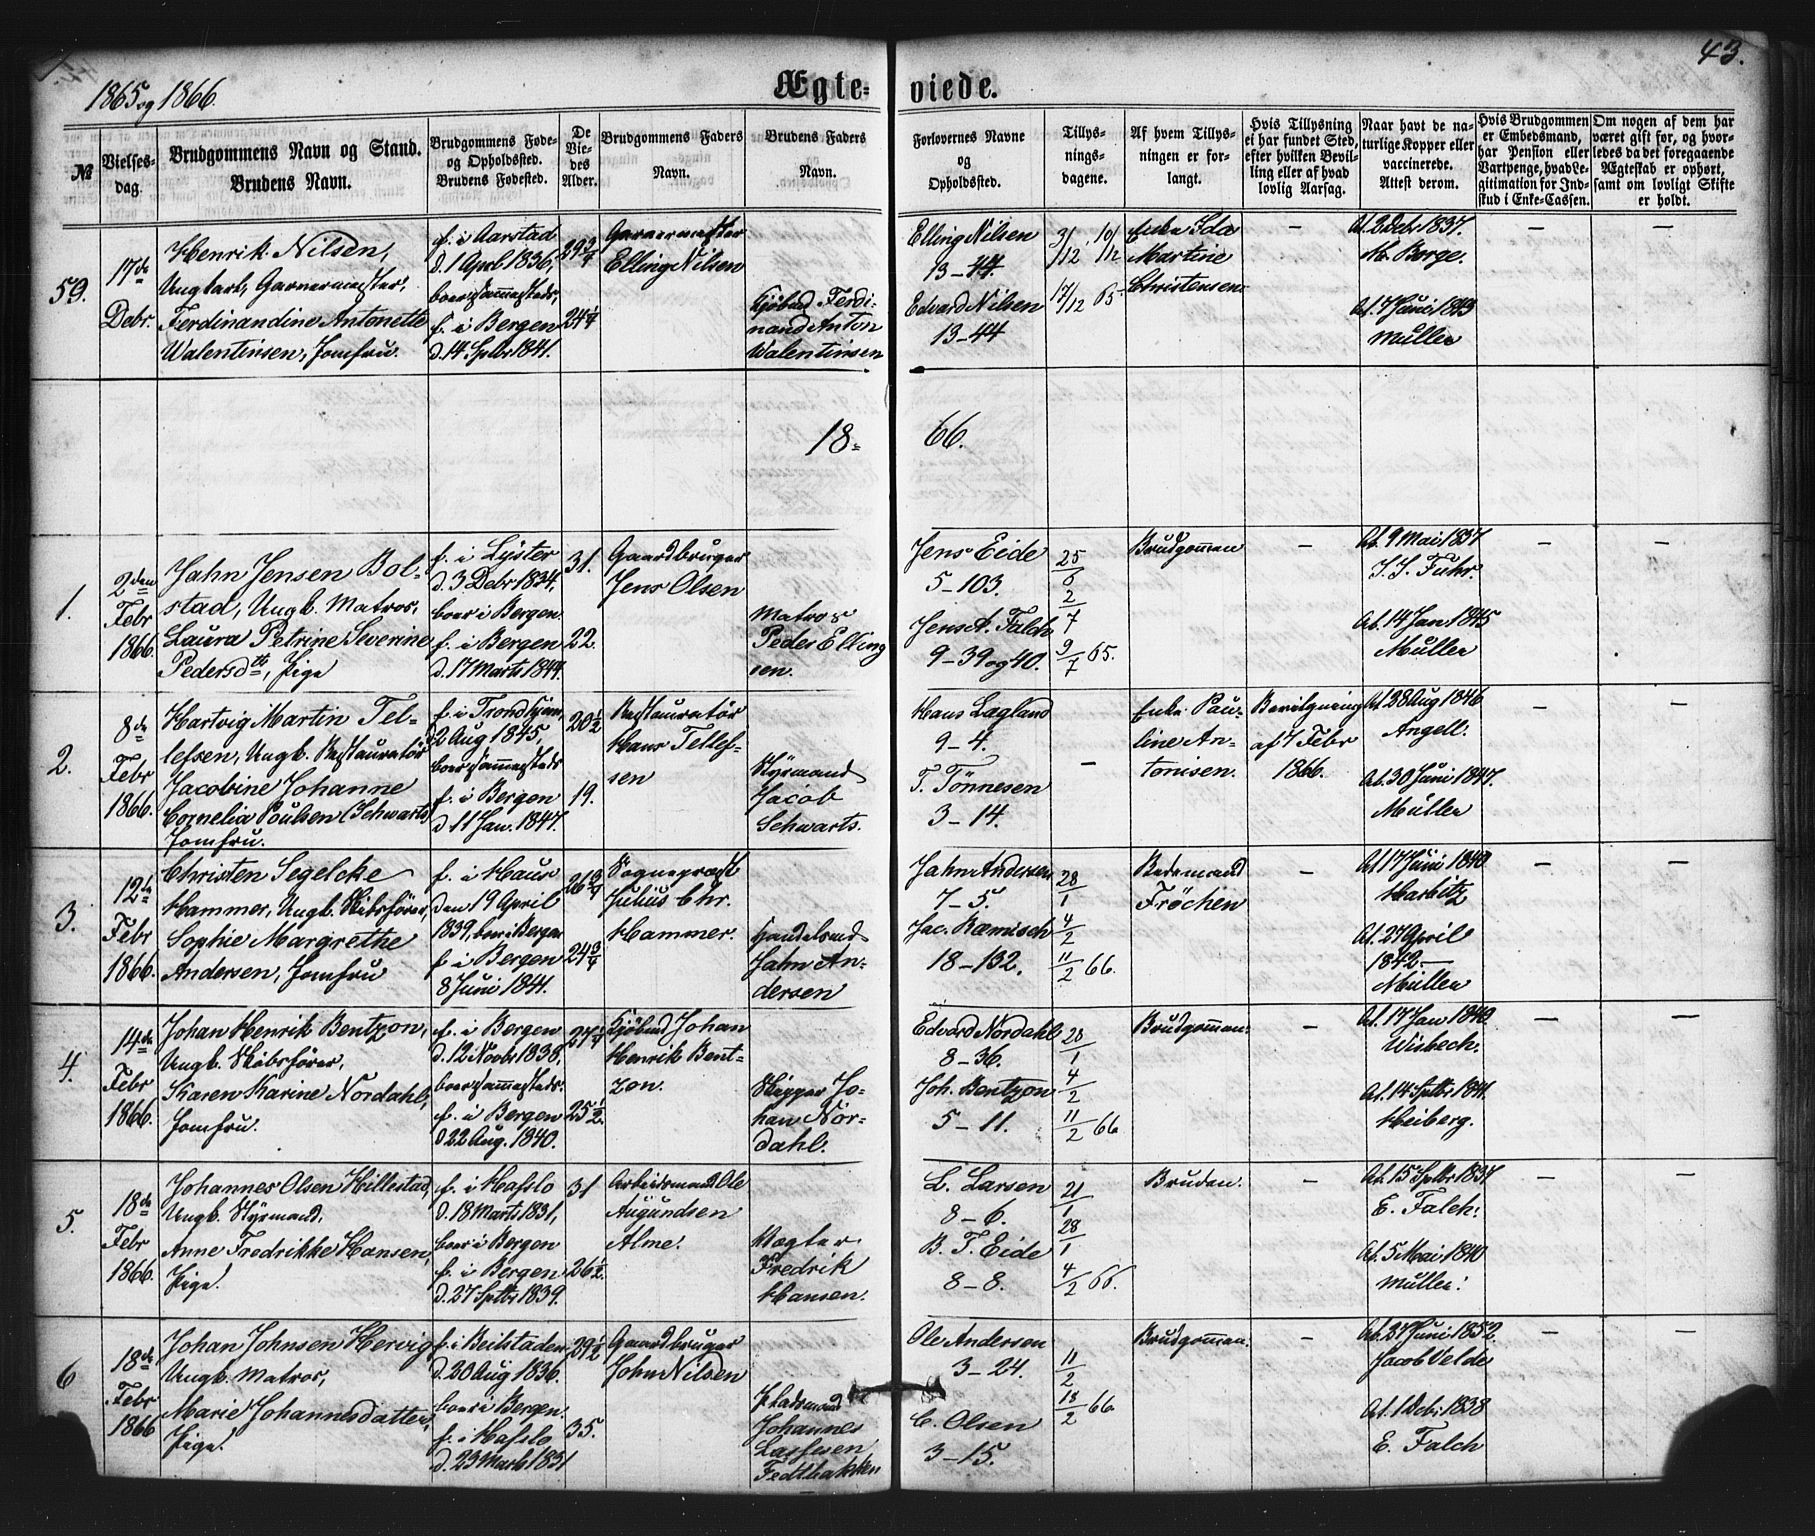 43.
1865 og 1866.
Ægte= viede.
№
Vielses-
dag.
Brudgommens Navn og Stand.
Brudens Navn.
Brudgommens Føde-
og Opholdssted.
Brudens Fødested.
De
Vie-
des
Alder.
Brudgommens Faders
Navn.
Brudens Faders
Navn.
Forlovernes Navne
og
Opholdssted.
Tillys-
nings-
dagene.
Af hvem Tillys-
ningen er for-
langt.
Hvis Tillysning
ei har fundet Sted,
efter hvilken Bevil-
ling eller af hvad
lovlig Aarsag.
Naar havt de na-
turlige Kopper eller
vaccinerede.
Attest derom.
Hvis Brudgommen
er Embedsmand,
har Pension eller
Vartpenge, hvad Le-
gitimation for Ind-
skud i Enke-Cassen.
Om nogen af dem har
været gift før, og hvor-
ledes da det foregaaende
Ægteskab er ophørt,
samt om lovligt Skifte
er holdt.
59.
17de
Debr.
Henrik Nilsen,
Ungkarl, Garvermester,
Ferdinandine Antonette
Walentinsen, Jomfru.
f. i Aarstad
d. 1 April 1836,
boer sammesteds,
f. i Bergen
d. 14 Sptbr 1841.
29 3/4
24 1/4
Garvermester
Elling Nilsen
Kjøbmd Ferdi-
nand Anton
Walentinsen
Elling Nilsen
13-44
Edvard Nilsen
13-44
3/12, 10/12
17/12 65
Enke Ida
Martine
Christensen
At. 2 Debr 1837.
M. Borge.
At. 7 Juni 1843
Müller
18= 66.
1.
2den
Febr
1866.
Jahn Jensen Bol-
stad, Ungk. Matros,
Laura Petrine Severine
Pedersdtr, Pige
f. i Lyster
d. 3 Debr 1834,
boer i Bergen
f. i Bergen
d. 17 Marts 1844.
31.
22.
Gaardbruger
Jens Olsen
Matros
Peder Elling
sen.
Jens Eide
5-103.
Jens A. Falch
9-39 og 40.
25/6
2/7
9/7 65.
Brudgommen
—
At. 9 Mai 1837
J. S. Fuhr.
At. 14 Jan 1845
Müller
—
—
2.
8de
Febr
1866.
Hartvig Martin Tel-
lefsen, Ungk. Restauratør
Jacobine Johanne
Cornelia Poulsen (Schwarts)
Jomfru.
f. i Trondhjem
d. 2 Aug 1845,
boer sammesteds
f. i Bergen
d 11 Jan. 1847.
20 1/2
19.
Restauratør
Hans Tellef-
sen
Styrmand
Jacob
Schwarts.
Hans Lagland
9-4.
T. Tönnesen
3-14.
—
Enke Pau-
line An-
tonisen.
Bevilgning
af 7 Febr
1866.
At. 28 Aug 1846
Angell.
At. 30 Juni 1847.
Müller
—
—
3.
12te
Febr
1866.
Christen Segelcke
Hammer, Ungk. Skibsfører,
Sophie Margrethe
Andersen, Jomfru
f. i Haus
den 19 April
1839, boer i Bergen
f i Bergen
8 Juni 1841.
26 3/4
24 3/4
Sognepræst
Julius Chr.
Hammer.
Handelsmd
Jahn An-
dersen
Jahn Andersen
7-5.
Jac. Ræmisch
18-132.
28/1
4/2
11/2 66.
Bedemand
Fröchen
—
At. 17 Juni 1840
Harbitz
At. 27 April
1842—
Müller
—
—
4.
14de
Febr
1866.
Johan Henrik Bentzon,
Ungk. Skibsfører,
Karen Karine Nordahl,
Jomfru.
f. i Bergen
d. 12 Novbr 1838.
boer sammesteds.
f. i Bergen
d 22 Aug. 1840.
27 1/4
25 1/2
Kjøbmd Johan
Henrik Bent-
zon.
Skipper Jo-
han Nor-
dahl.
Edvard Nordahl
8-36.
Joh. Bentzon
5-11.
28/1
4/2
11/2 66
Brudgommen.
—
At. 17 Jan 1840.
Wisbech.
At. 14 Sptbr 1841.
Heiberg.
—
—
5.
18de
Febr
1866.
Johannes Olsen Hillestad,
Ungk. Styrmand.
Anne Fredrikke Hansen,
Pige.
f. i Hafslo
d. 18 Marts 1831,
boer i Bergen
f. i Bergen
d. 27 Sptbr 1839.
31
26 1/2
Arbeidsmand Ole
Augundsen
Alme.
Vogter
Fredrik
Hansen.
L. Larsen
8-6.
B. T. Eide
8-8.
21/1
28/1
4/2 66.
Bruden.
—
At. 15 Sptbr 1837
E. Falch.
At. 5 Mai 1840
Müller.
—
—
6
18de
Febr
1866
Johan Johnsen Hervig,
Ungk. Matros,
Marie Johannesdatter,
Pige.
f. i Beilstaden,
d. 20 Aug 1836.
boer i Bergen.
f. i Hafslo
d. 23 Marts 1831
29 1/2
35.
Gaardbruger
John Nilsen
Pladsmand
Johannes
Lassesen
Fedthakken
Ole Andersen
3-24.
C. Olsen
3-15.
11/2
18/2 66.
Brudgommen.
—
At. 27 Juni 1852.
Jacob Velde
At. 1 Debr 1838
E. Falch
—
—